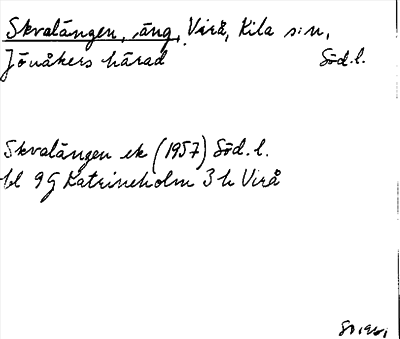 Skvalängen, äng, Virå, Kila s:n,
Jönåkers härad Söd.l.
Skvalängen ek (1957) Söd.l.
bl 9G Katrineholm 3h Virå